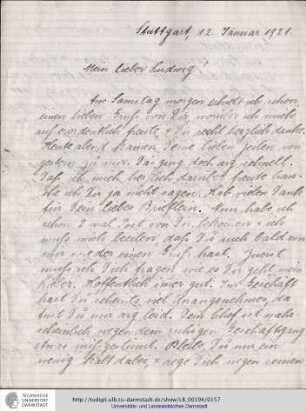 Stuttgart, 12. Januar 1921.
Mein lieber Ludwig!
Am Samstag morgen erhielt ich schon
einen lieben Gruß von Dir worüber ich mich
außerordentlich freute, & Dir recht herzlich danke.
Heute abend kamen Deine lieben Zeilen von
gestern zu mir. Da ging doch arg schnell.
Daß ich mich herzlich darüber freute brau-
che ich Dir ja nicht sagen. Hab vielen Dank
für Dein liebes Brieflein. Nun habe ich
schon 2 mal Post von Dir bekommen & ich
muß mich beeilen, daß Du auch bald von
mir wieder einen Gruß hast. Zuerst
muß ich Dich fragen wie es Dir geht mein
Lieber. Hoffentlich immer gut. Im Geschäft
hast Du scheints viel Unangenehmes, da
tust Du mir arg leid. Dein Chef ist wahr-
scheinlich wegen dem ruhigen Geschäftsgang
etwas mißgestimmt. Bleibe Du nur ein
wenig kalt dabei, & rege Dich wegen seinen
TECHNISCHE
UNIVERSITÄT
DARMSTADT
http://tudigit.ulb.tu-darmstadt.de/show/LB_00194/0157
Universitäts- und Landesbibliothek Darmstadt